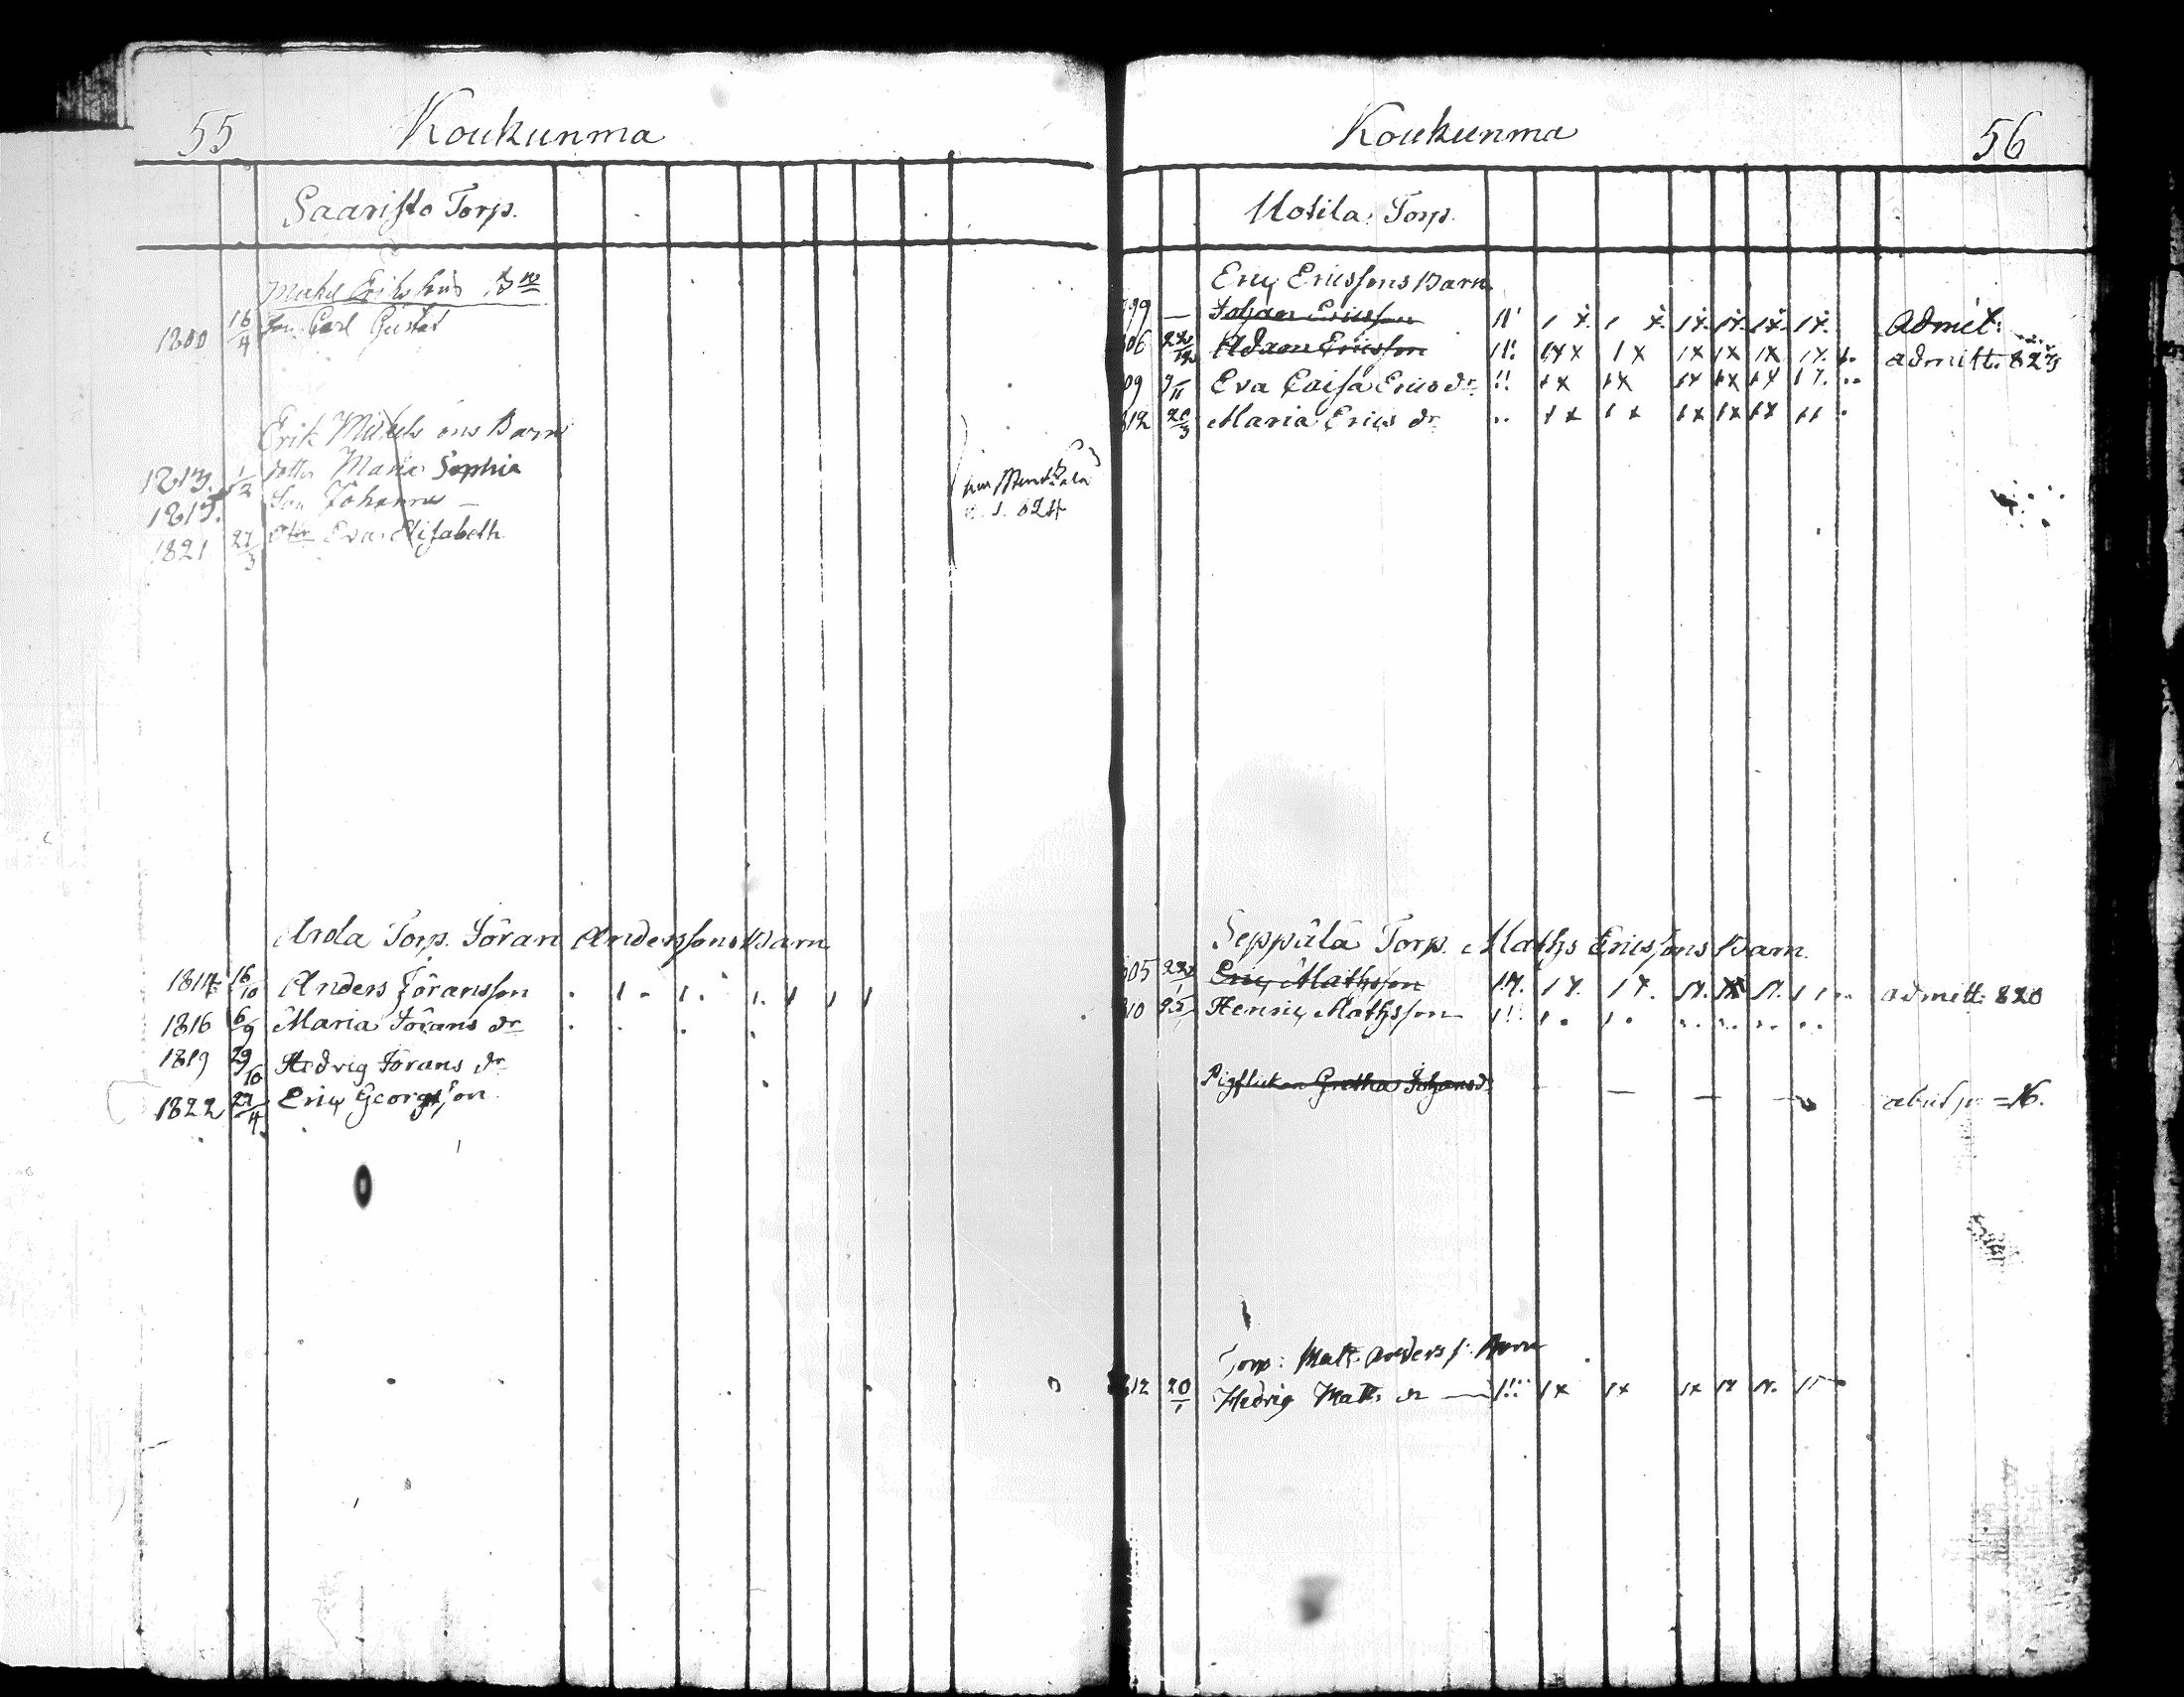 55 Koukunma
Saaristo Torp.
Michel Erikssons
1800 16/4 Son Carl Gustaf
Erik Michelsons Barn
1813. 1/2 dotter Maria Sophia
1815. Son Johannes —
1821 27/3 Eva Elisabeth
824
Arola Torp. Jöran Anderssons Barn
1814 16/10 Anders Jöransson
1816 6/9 Maria Jörans dr
1819 29/10 Hedvig Jörans dr
1822 27/4 Eric Georgsson
Koukunma 56
Uotila Torp.
Eric Ericssons Barn
99 — Johan Ericsson Admit:
06 22/12 Adam Ericsson admitt. 827
09 9/11 Eva Caisa Erics dr
812 20/3 Maria Erics dr
Seppälä Torp. Maths Ericssons Barn.
05 Eric Mathsson admitt. 820
10 25 Henric Mathsson
Pigflickan Gretha Johansd.
Torp: Matt. Anders s. Barn
812 20/1 Hedvig Matts dr